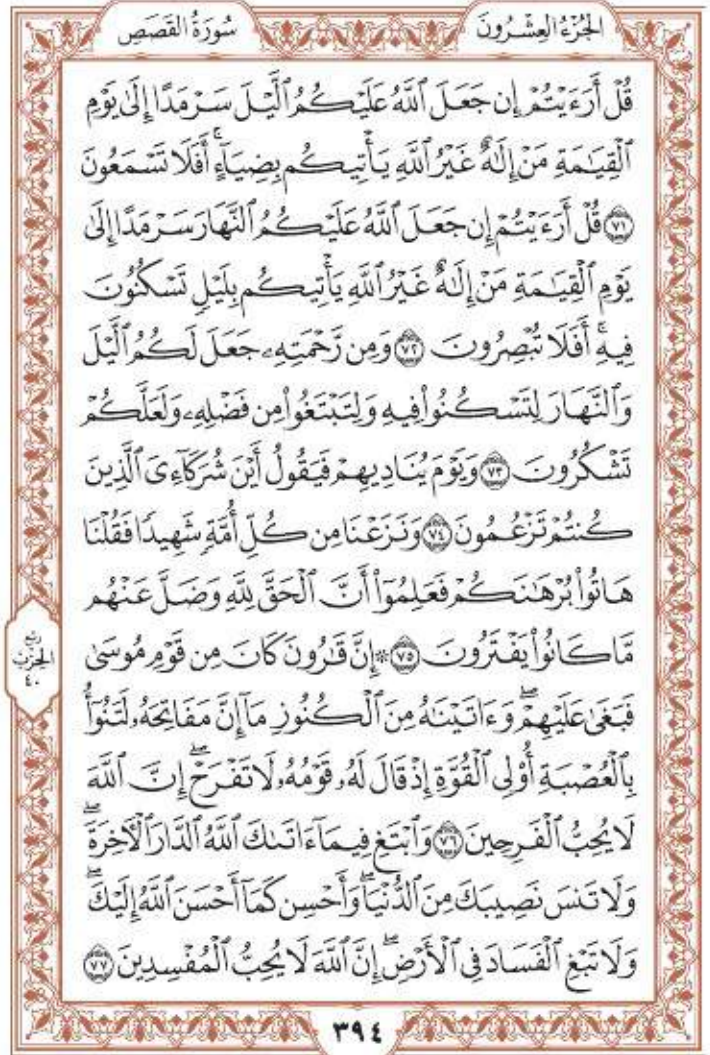 الجُزْءُ العِشْرُونَ
سُورَةُ القَصَصِ
قُلْ أَرَءَيْتُمْ إِن جَعَلَ ٱللَّهُ عَلَيْكُمُ ٱلَّيْلَ سَرْمَدًا إِلَىٰ يَوْمِ
ٱلْقِيَٰمَةِ مَنْ إِلَٰهٌ غَيْرُ ٱللَّهِ يَأْتِيكُم بِضِيَآءٍ ۚ أَفَلَا تَسْمَعُونَ
٧١ قُلْ أَرَءَيْتُمْ إِن جَعَلَ ٱللَّهُ عَلَيْكُمُ ٱلنَّهَارَ سَرْمَدًا إِلَىٰ
يَوْمِ ٱلْقِيَٰمَةِ مَنْ إِلَٰهٌ غَيْرُ ٱللَّهِ يَأْتِيكُم بِلَيْلٍ تَسْكُنُونَ
فِيهِ ۚ أَفَلَا تُبْصِرُونَ ٧٢ وَمِن رَّحْمَتِهِۦ جَعَلَ لَكُمُ ٱلَّيْلَ
وَٱلنَّهَارَ لِتَسْكُنُوا۟ فِيهِ وَلِتَبْتَغُوا۟ مِن فَضْلِهِۦ وَلَعَلَّكُمْ
تَشْكُرُونَ ٧٣ وَيَوْمَ يُنَادِيهِمْ فَيَقُولُ أَيْنَ شُرَكَآءِىَ ٱلَّذِينَ
كُنتُمْ تَزْعُمُونَ ٧٤ وَنَزَعْنَا مِن كُلِّ أُمَّةٍ شَهِيدًا فَقُلْنَا
هَاتُوا۟ بُرْهَٰنَكُمْ فَعَلِمُوٓا۟ أَنَّ ٱلْحَقَّ لِلَّهِ وَضَلَّ عَنْهُم
مَّا كَانُوا۟ يَفْتَرُونَ ٧٥ ۞ إِنَّ قَٰرُونَ كَانَ مِن قَوْمِ مُوسَىٰ
فَبَغَىٰ عَلَيْهِمْ ۖ وَءَاتَيْنَٰهُ مِنَ ٱلْكُنُوزِ مَآ إِنَّ مَفَاتِحَهُۥ لَتَنُوٓأُ
بِٱلْعُصْبَةِ أُو۟لِى ٱلْقُوَّةِ إِذْ قَالَ لَهُۥ قَوْمُهُۥ لَا تَفْرَحْ ۖ إِنَّ ٱللَّهَ
لَا يُحِبُّ ٱلْفَرِحِينَ ٧٦ وَٱبْتَغِ فِيمَآ ءَاتَىٰكَ ٱللَّهُ ٱلدَّارَ ٱلْءَاخِرَةَ ۖ
وَلَا تَنسَ نَصِيبَكَ مِنَ ٱلدُّنْيَا ۖ وَأَحْسِن كَمَآ أَحْسَنَ ٱللَّهُ إِلَيْكَ ۖ
وَلَا تَبْغِ ٱلْفَسَادَ فِى ٱلْأَرْضِ ۖ إِنَّ ٱللَّهَ لَا يُحِبُّ ٱلْمُفْسِدِينَ ٧٧
ربع
الحزب
٤٠
٣٩٤